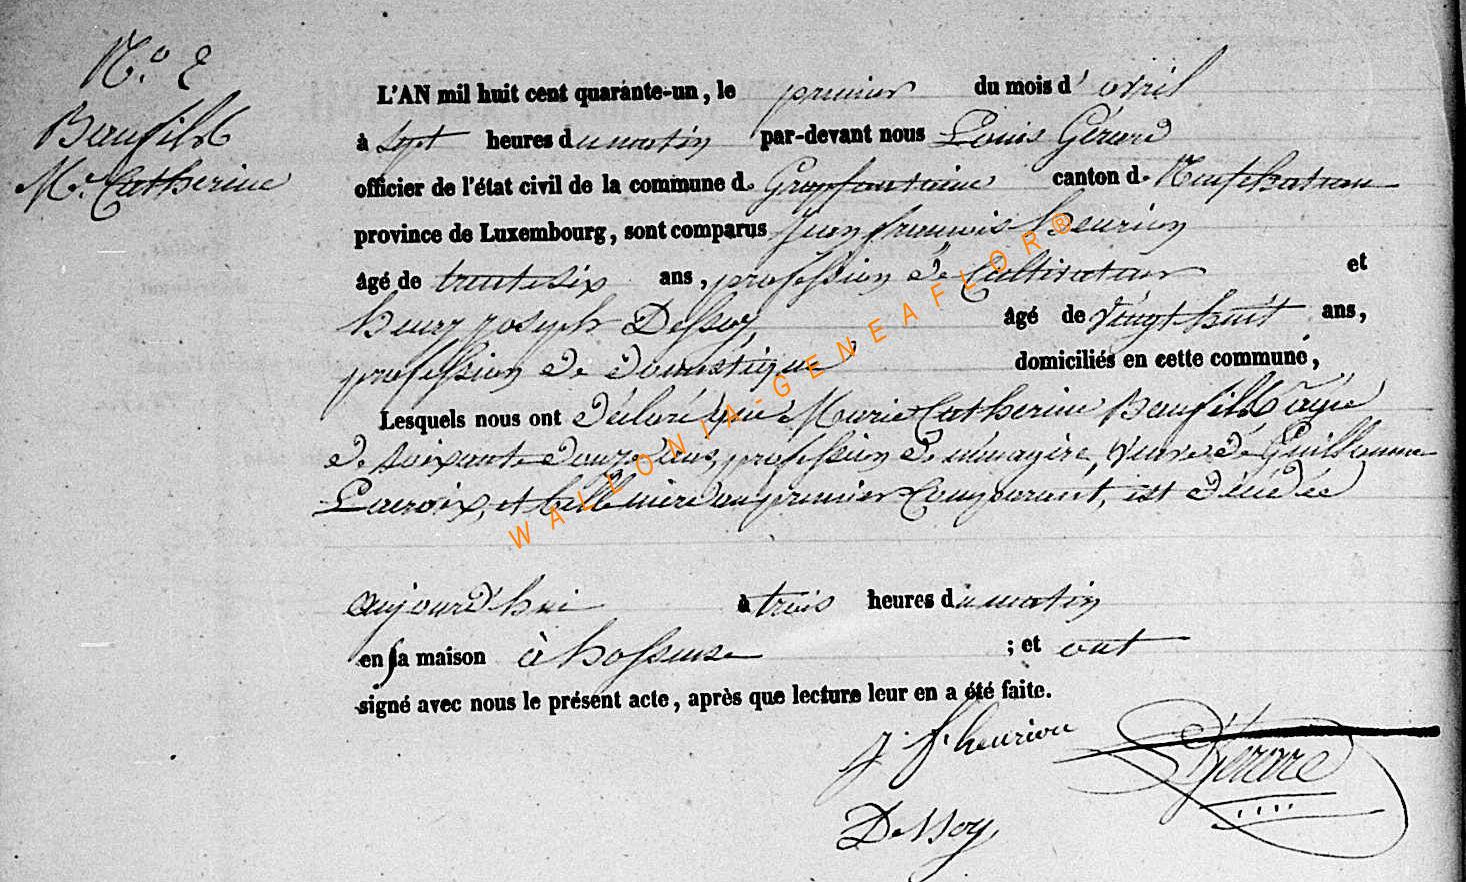 N.º 2
Baufilst
M.e Catherine
L'AN mil huit cent quarante-un, le premier du mois d'avril
à sept heures du matin par-devant nous Louis Gérard
officier de l'état civil de la commune d. Grapfontaine canton d. Neufchateau
province de Luxembourg, sont comparus Jean françois henrion
âgé de trente six ans, profession de Cultivateur et
henry joseph Dessoy âgé de vingt huit ans,
profession de domestique domiciliés en cette commune,
Lesquels nous ont déclaré que Marie Catherine Baufilst agée
de soixante douze ans, profession de ménagère, veuve de Guillaume
Lacroix, et belle mère au premier Comparant, est décédée
aujourd'hui à trois heures du matin
en sa maison à hosseuse ; et ont
signé avec nous le présent acte, après que lecture leur en a été faite.
J. f. henrion
L Gérard
Dessoy
WALLONIA-GENEAFLOR®